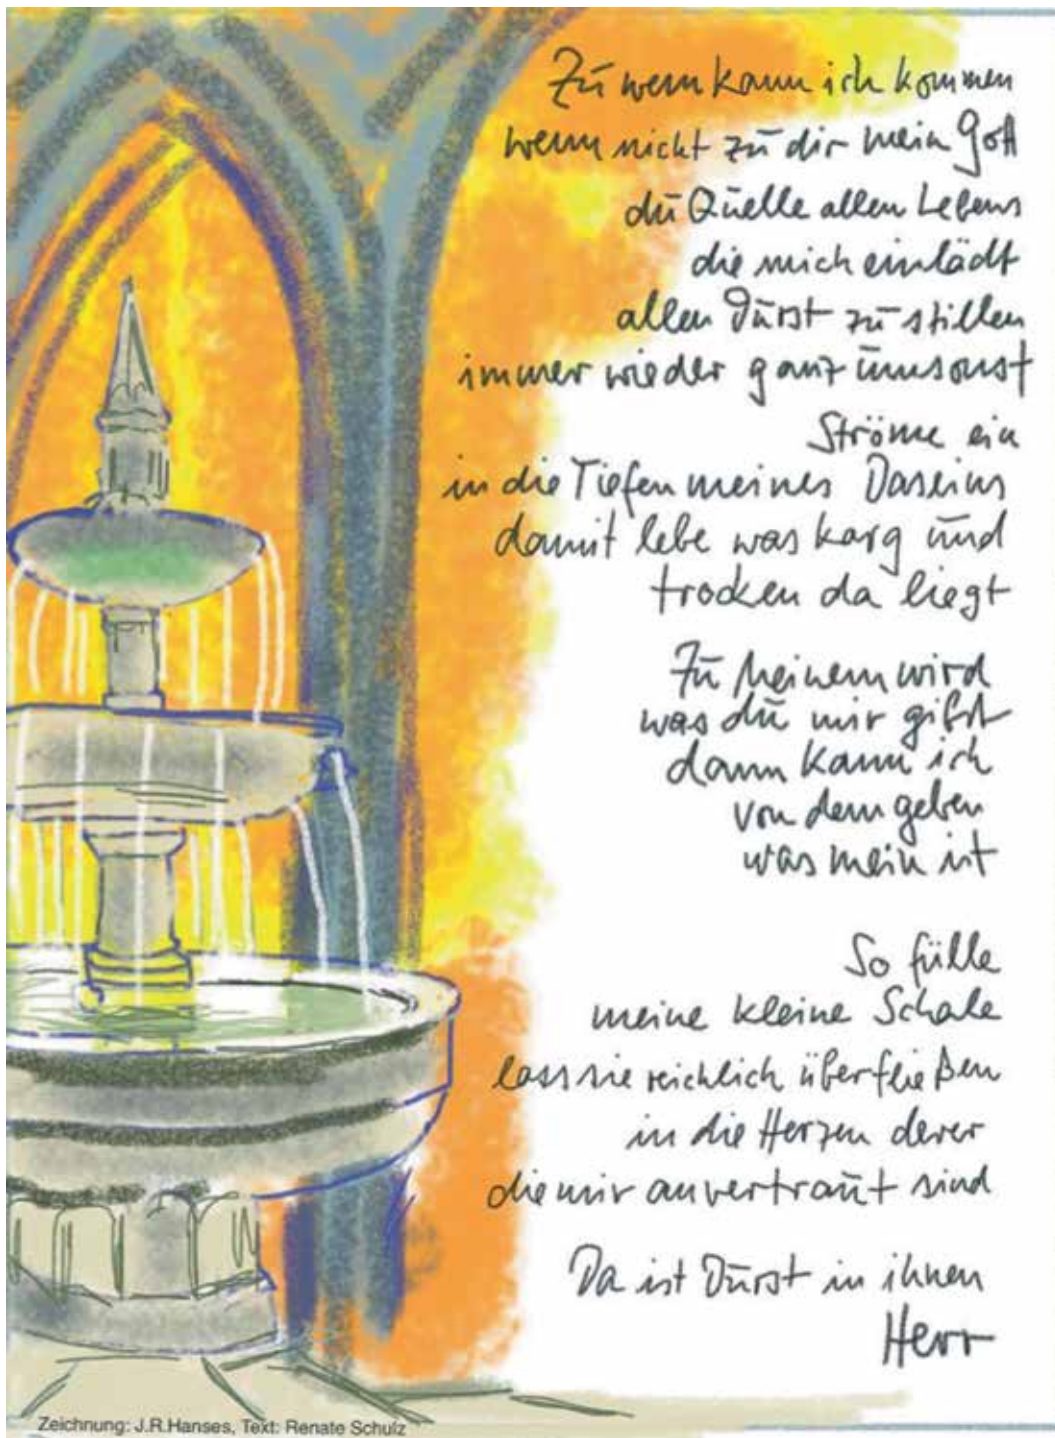 Zu wem kann ich kommen
wenn nicht zu dir mein Gott
du Quelle allen Lebens
die mich einlädt
allen Durst zu stillen
immer wieder ganz umsonst
Ströme ein
in die Tiefen meines Daseins
damit lebe was karg und
trocken da liegt
Zu meinem wird
was du mir gibst
dann kann ich
von dem geben
was mein ist
So fülle
meine kleine Schale
lass sie reichlich überfließen
in die Herzen derer
die mir anvertraut sind
Da ist Durst in ihnen
Herr
Zeichnung: J.R.Hanses, Text: Renate Schulz